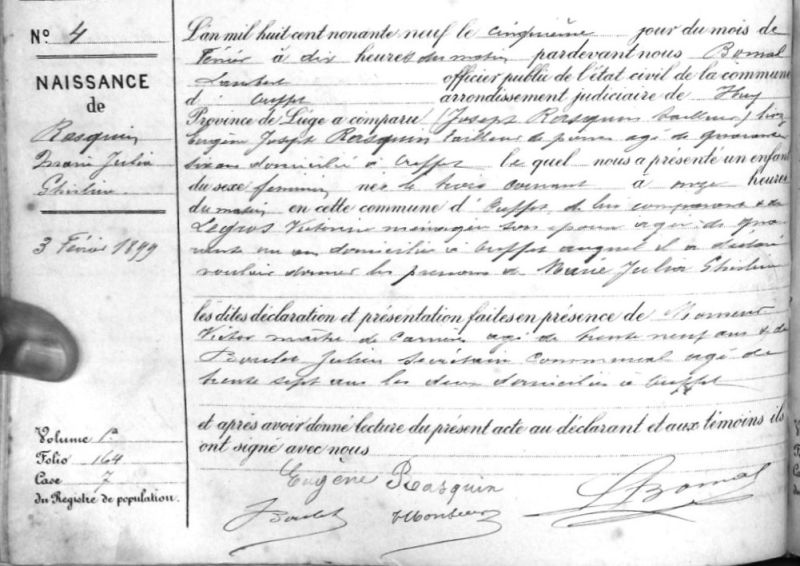 N° 4
NAISSANCE
de
Rasquin
Marie Julia
Ghislaine
3 Février 1899
Volume 1
Folio 164
Case 7
du Registre de population.
L'an mil huit cent nonante neuf le cinquième jour du mois de
Février à dix heures du matin pardevant nous Bomal
Lambert officier public de l'état civil de la commune
d' arrondissement judiciaire de Huy
Province de Liége a comparu (Joseph Rasquin tailleur)
Eugène Joseph Rasquin tailleur de pierres agé de quarante
six ans domicilié à le quel nous a présenté un enfant
du sexe féminin née le trois courant à onze heures
du matin en cette commune d' de lui comparant & de
Legros Victorine ménagère son épouse agée de qua
rante un an domiciliée à auquel il a déclaré
vouloir donner les prénoms de Marie Julia Ghislaine
les dites déclaration et présentation faites en présence de
Victor maître de carrières agé de trente neuf ans & de
Boulet Julien secrétaire communal agé de
trente sept ans les deux domiciliés à
et après avoir donné lecture du présent acte au déclarant et aux témoins ils
ont signé avec nous
Eugène Rasquin
LBomal
JBoulet